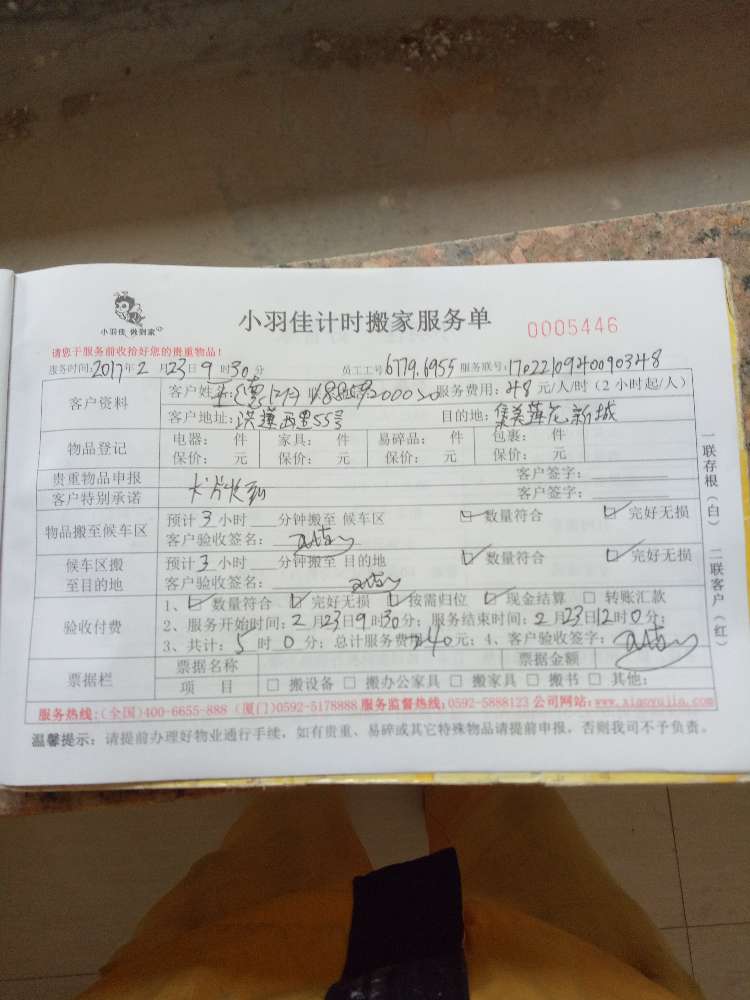 小羽佳 做到家
小羽佳计时搬家服务单 0005446
请您于服务前收拾好您的贵重物品！
服务时间:2017年2月23日9时30分 员工工号6779.6955 服务联号:
客户资料 客户姓名: 服务费用:48元/人/时（2小时起/人）
客户地址:洪莲西里55号 目的地:集美莲花新城
物品登记 电器: 件 家具: 件 易碎品: 件 包裹: 件
保价: 元 保价: 元 保价: 元 保价: 元
贵重物品申报 客户签字:
客户特别承诺 客户签字:
物品搬至候车区 预计3小时 分钟搬至 候车区 数量符合 完好无损
客户验收签名:
候车区搬至目的地 预计3小时 分钟搬至 目的地 数量符合 完好无损
客户验收签名:
验收付费 1、数量符合 完好无损 按需归位 现金结算 转账汇款
2、服务开始时间:2月23日9时30分; 服务结束时间:2月23日12时0分;
3、共计:5时0分; 总计服务费240元; 4、客户验收签字:
票据栏 票据名称 票据金额
项 目 搬设备 搬办公家具 搬家具 搬书 其他:
服务热线:(全国)400-6655-888 (厦门)0592-5178888 服务监督热线:0592-5888123 公司网站:www.xiaoyujia.com
温馨提示: 请提前办理好物业通行手续，如有贵重、易碎或其它特殊物品请提前申报，否则我司不予负责。
一联存根(白) 二联客户(红)